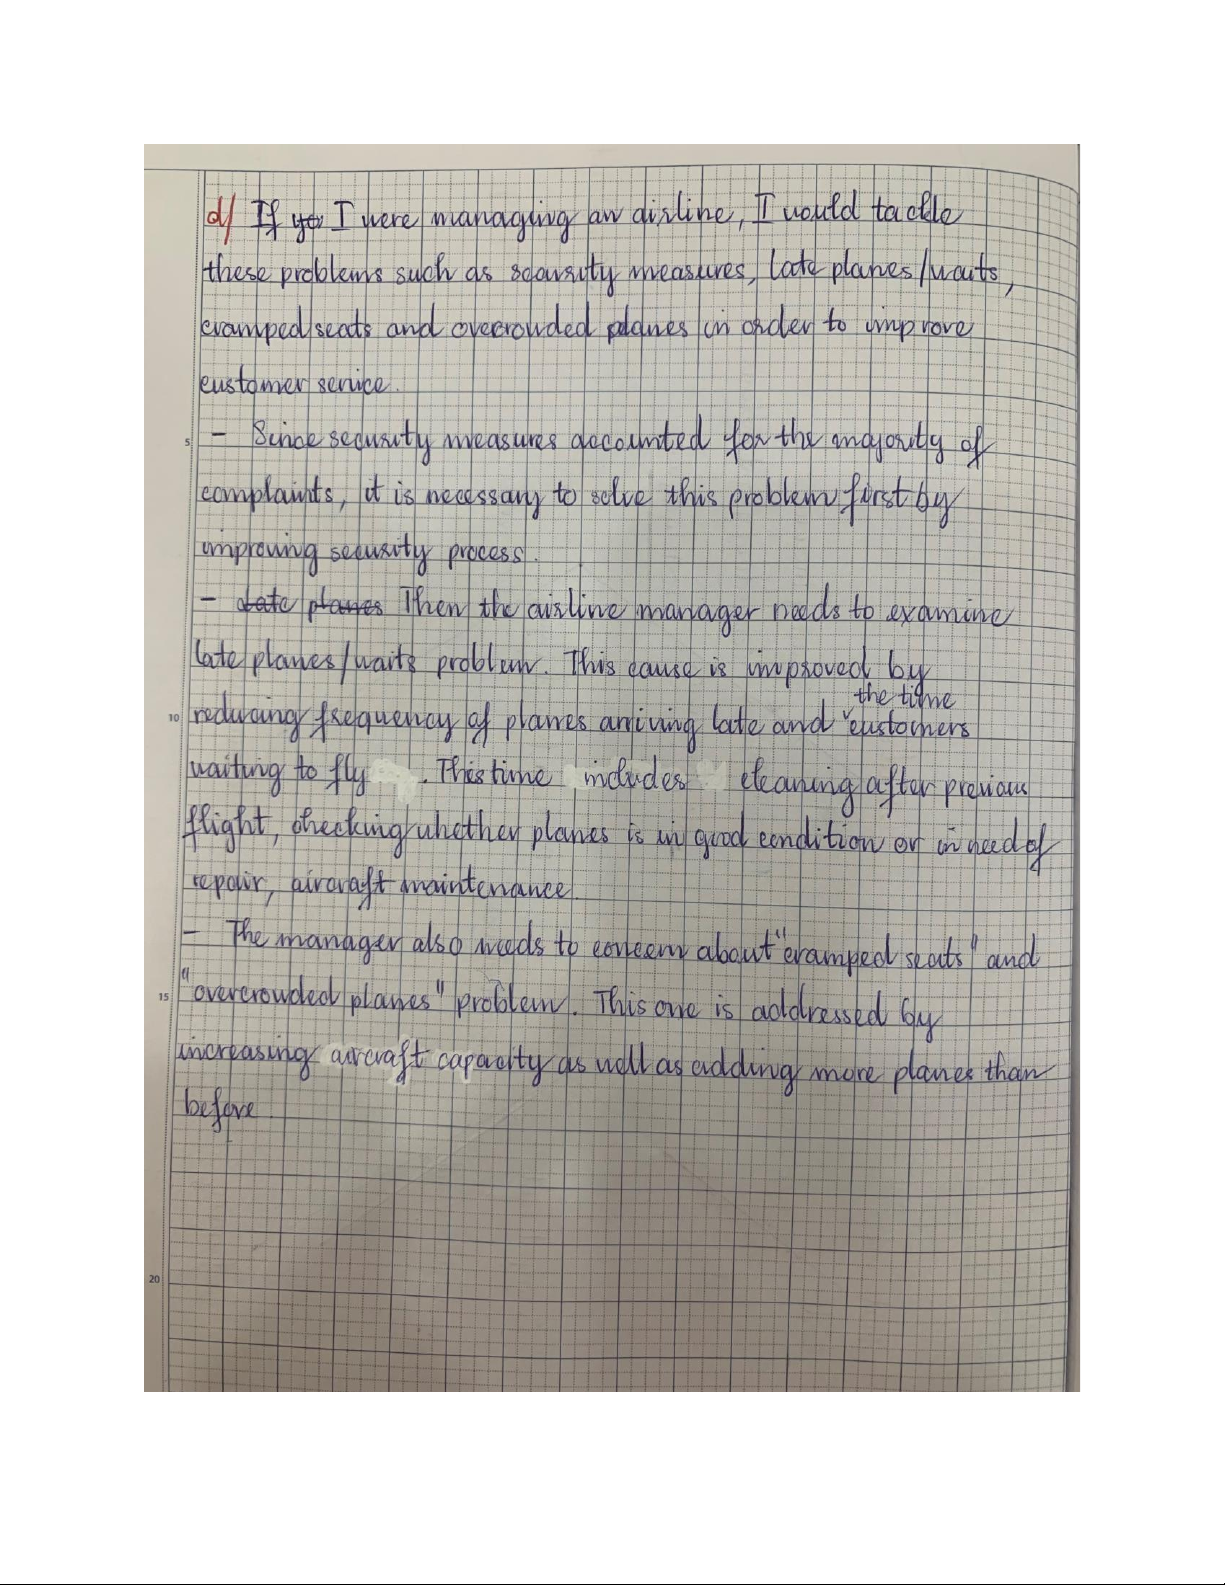 d/ If yo I were managing an airline, I would tackle
these problems such as security measures, late planes/waits,
cramped seats and overcrowded planes in order to improve
customer service.
5 - Since security measures accounted for the majority of
complaints, it is necessary to solve this problem first by
improving security process.
- Late planes Then the airline manager needs to examine
late planes/waits problem. This cause is improved by
the time
10 reducing frequency of planes arriving late and customers
waiting to fly. This time includes cleaning after previous
flight, checking whether planes is in good condition or in need of
repair, aircraft maintenance.
- The manager also needs to concern about "cramped seats" and
15 "overcrowded planes" problem. This one is addressed by
increasing aircraft capacity as well as adding more planes than
before
20